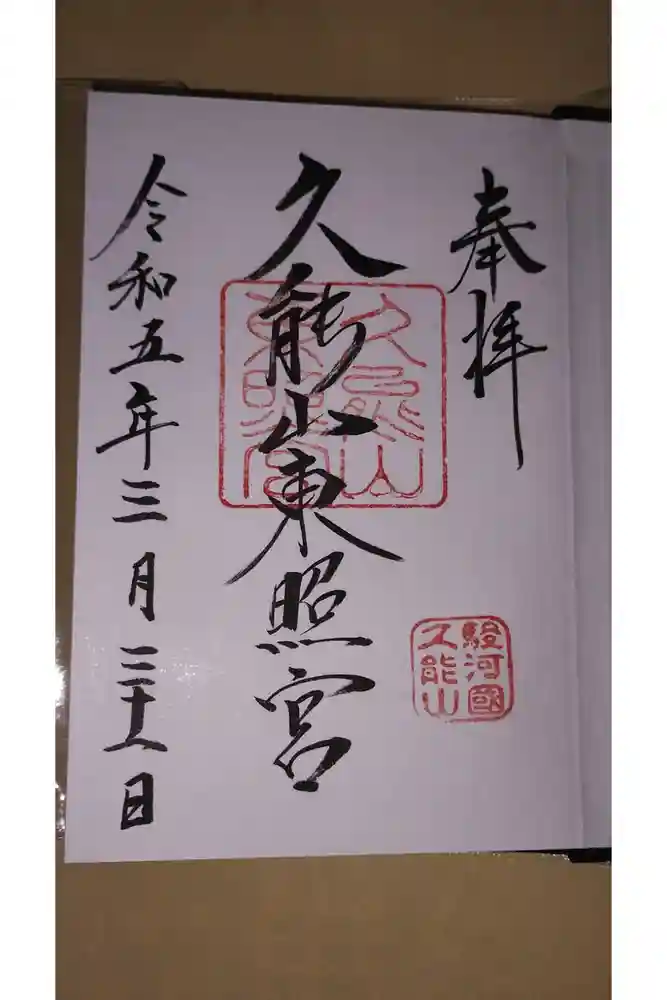 奉拝
駿河國
久能山
久能山東照宮
久能山
東照宮
令和五年三月二十八日